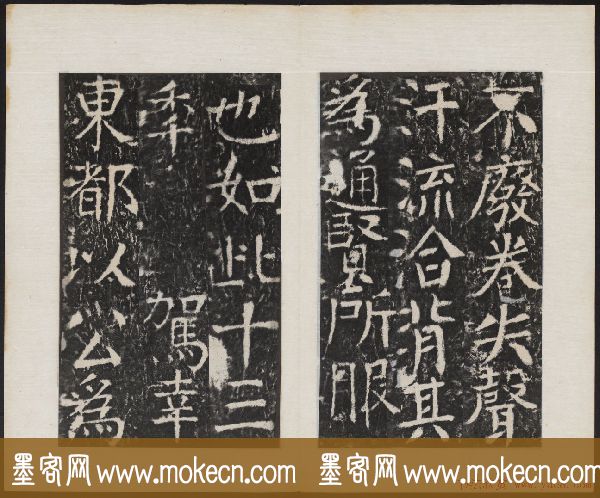 不廢卷失聲
汗流洽背其
為通賢所服
也如此十三
年　駕幸
東都以公為
墨客网 www.mokecn.com 墨客网 www.mokecn.com